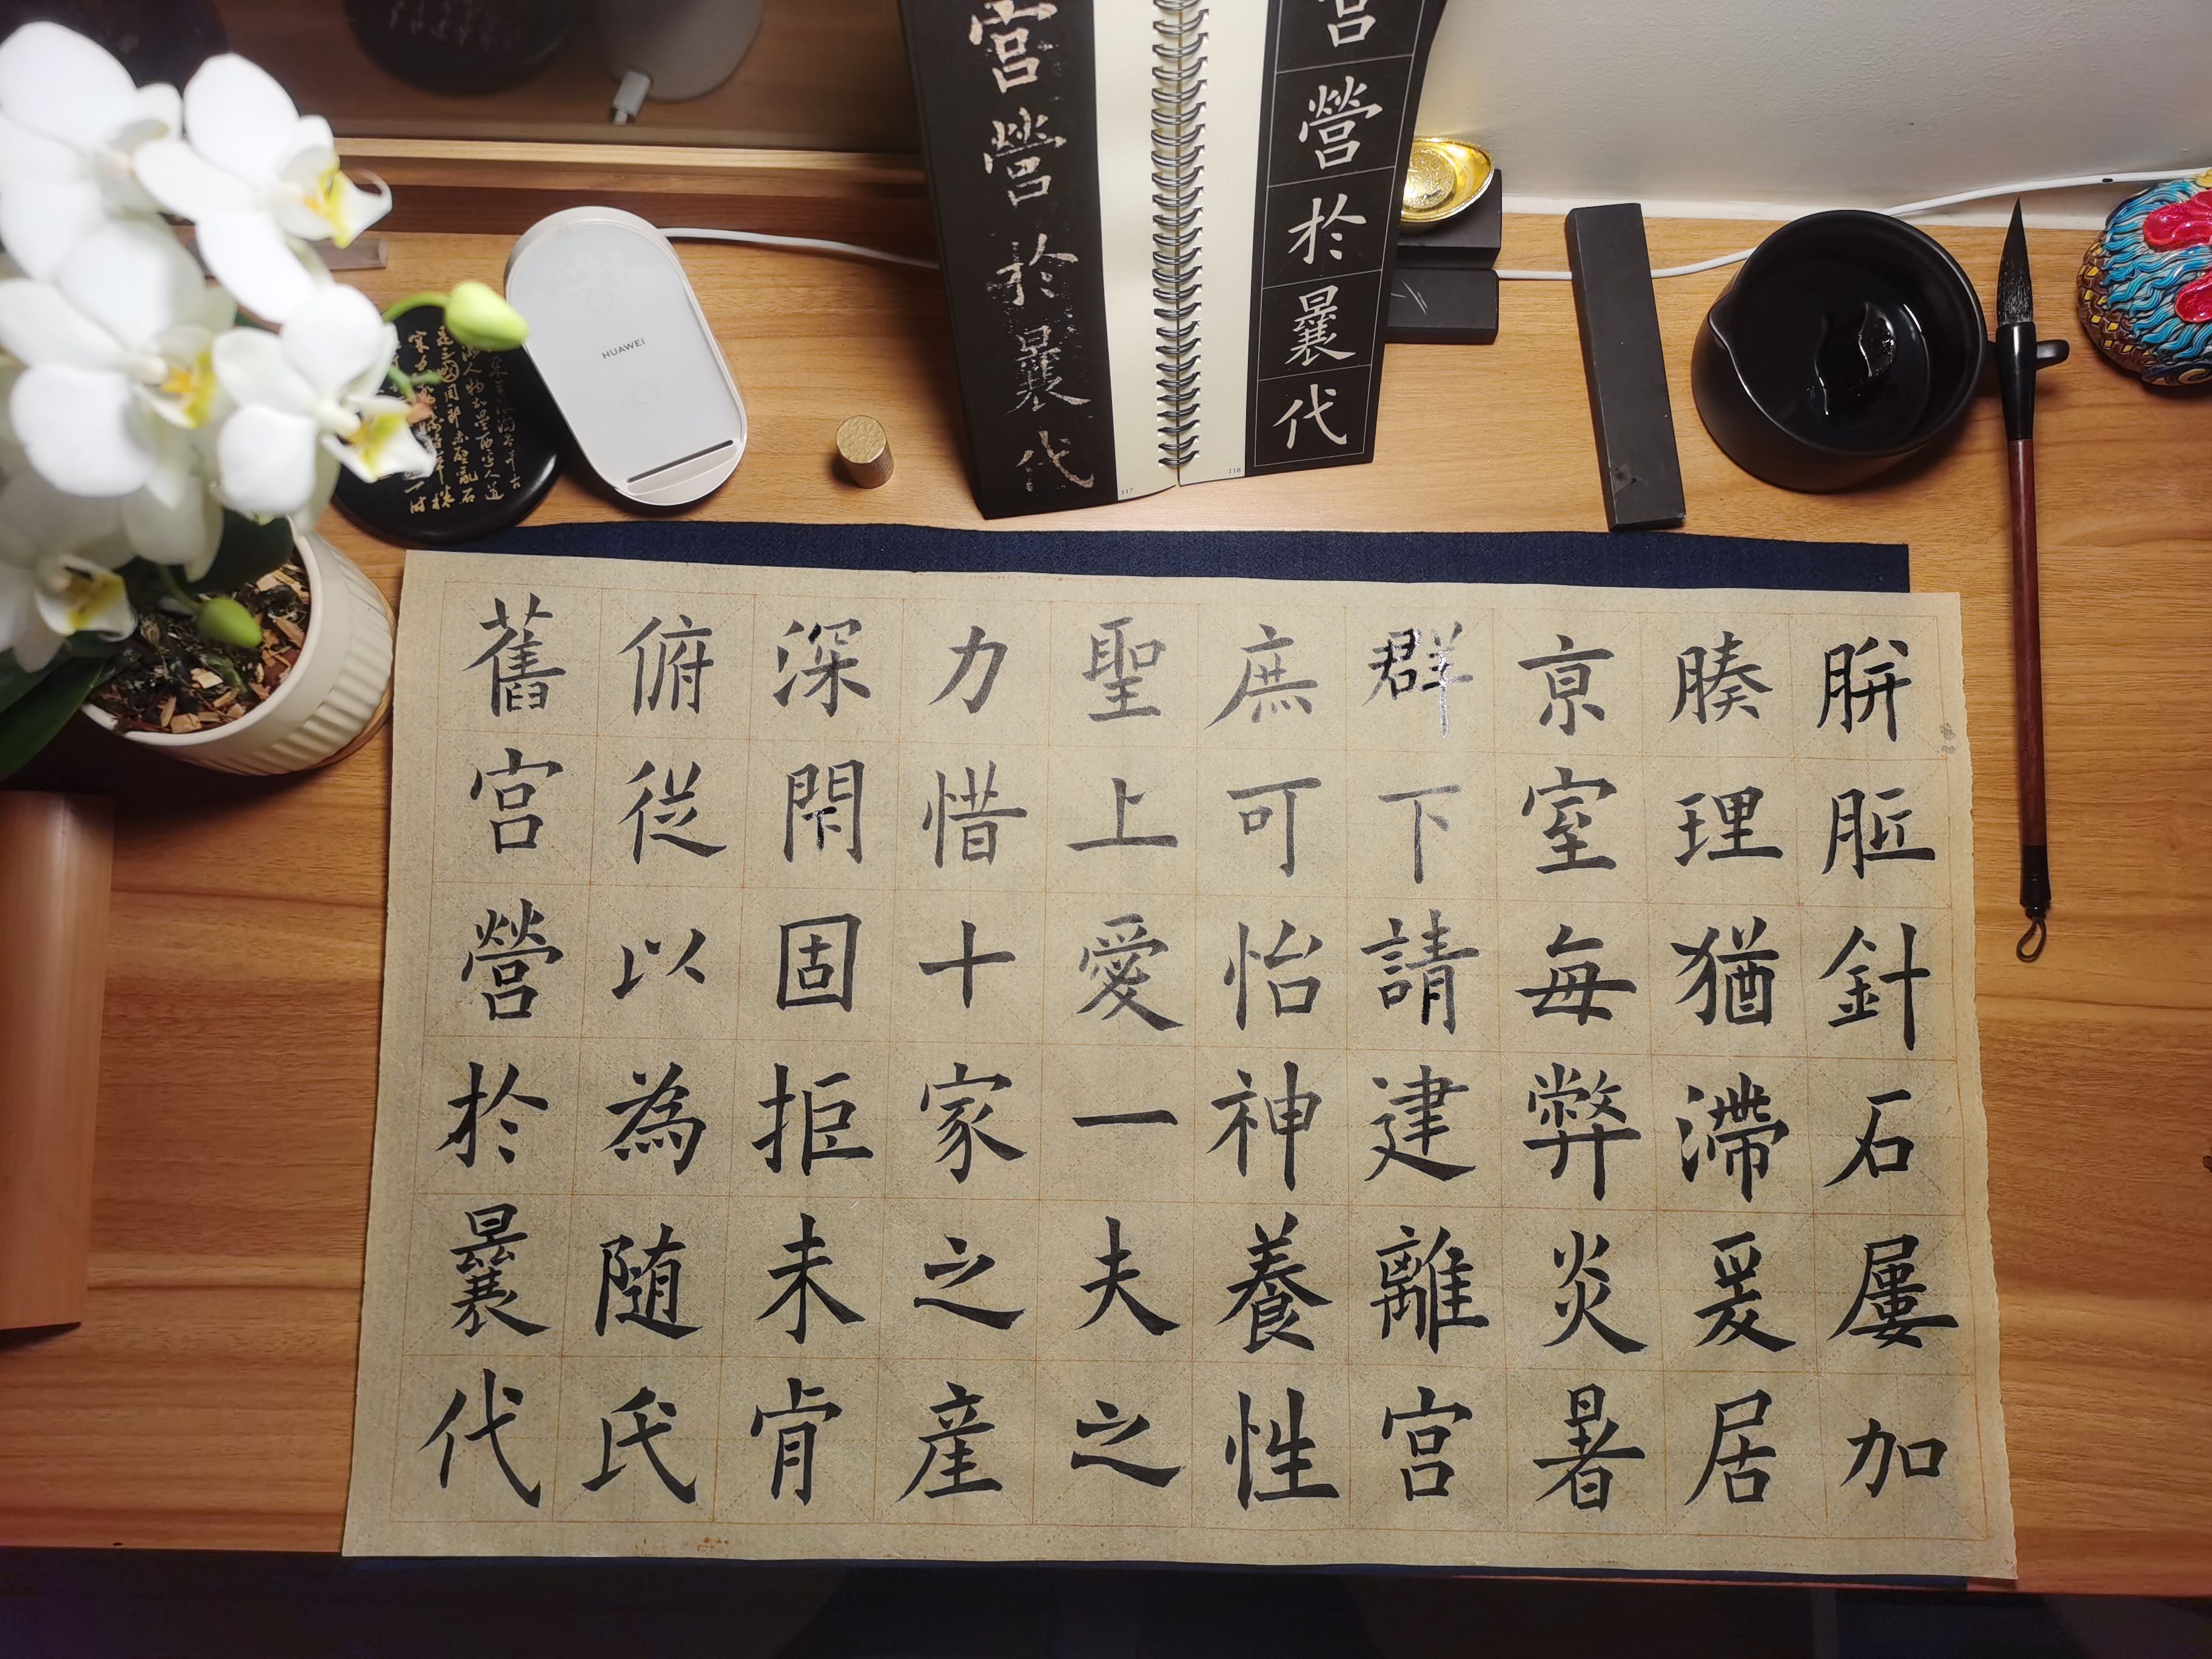 胼胝針石屢加
腠理猶滯爰居
亰室每弊炎暑
群下請建離宮
庶可怡神養性
聖上愛一夫之
力惜十家之産
深閇固拒未肯
俯従以為随氏
舊宮營於曩代
宮營於曩代
118
宮營於曩代
117
HUAWEI